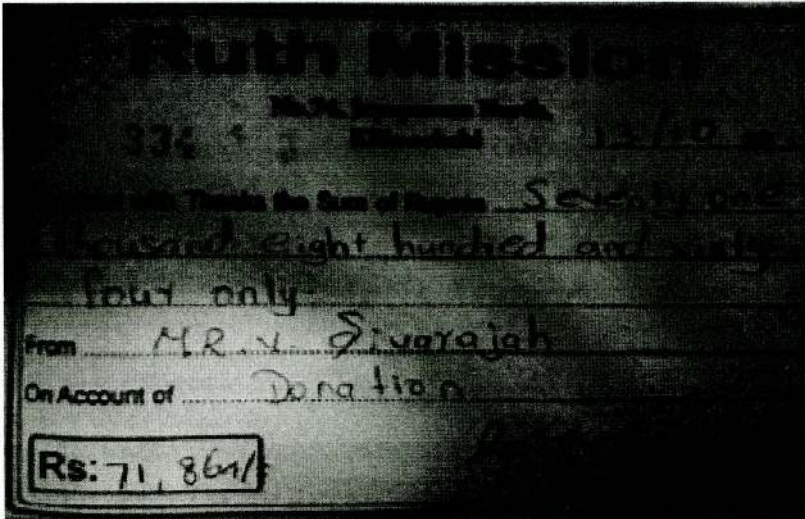 Ruth Mission
334
with Thanks the Sum of Rupees Seventy one
thousand eight hundred and sixty
four only
From MR. V. Sivarajah
On Account of Donation
Rs: 71,864/-